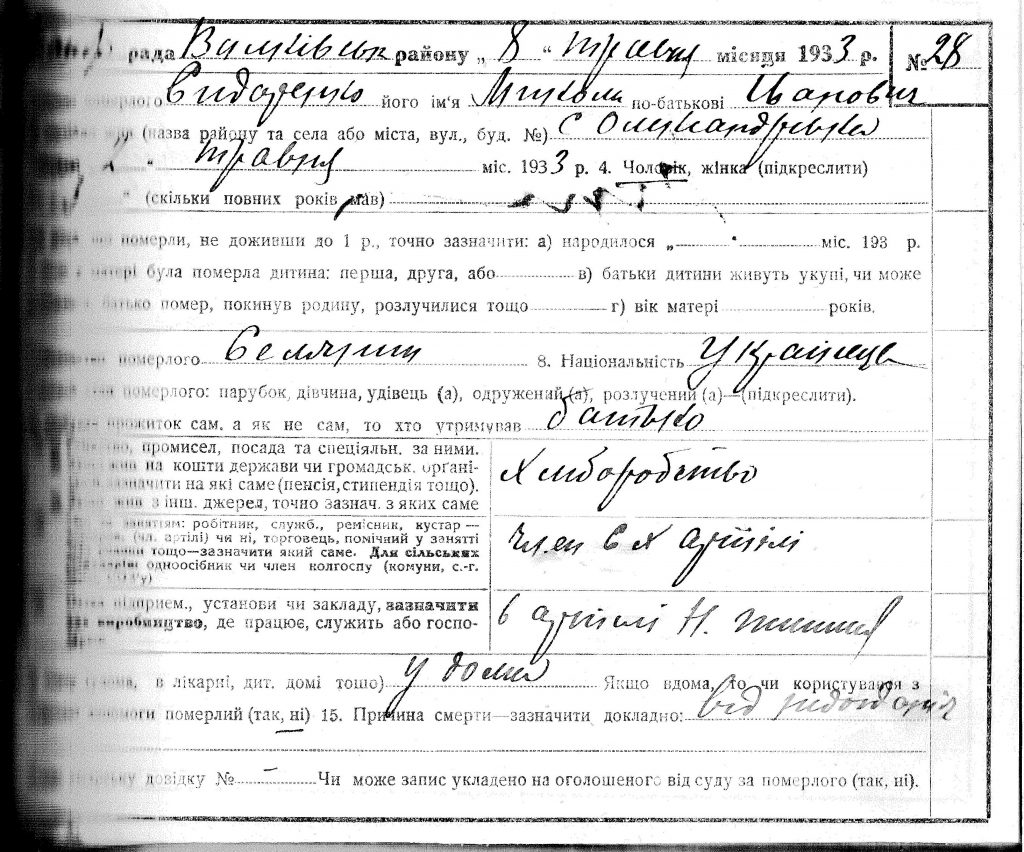 рада Валківськ району „ 8 “ травня місяця 1933 р. № 28
його ім'я Микола по-батькові Іванович
(назва району та села або міста, вул., буд. №) с Олександрівка
травня міс. 1933 р. 4. Чоловік, жінка (підкреслити)
(скільки повних років мав)
померли, не доживши до 1 р., точно зазначити: а) народилося „ “ міс. 193 р.
матері була померла дитина: перша, друга, або в) батьки дитини живуть укупі, чи може
батько помер, покинув родину, розлучилися тощо г) вік матері років.
померлого Селянин 8. Національність Українець
померлого: парубок, дівчина, удівець (а), одружений (а), розлучений (а)—(підкреслити).
прожиток сам, а як не сам, то хто утримував батько
промисел, посада та спеціяльн. за ними.
на кошти держави чи громадськ. органі-
зазначити на які саме (пенсія, стипендія тощо).
з інш. джерел, точно зазнач. з яких саме
хліборобство
заняттям: робітник, служб., ремісник, кустар —
(чл. артілі) чи ні, торговець, помічний у занятті
тощо—зазначити який саме. Для сільських
одноосібник чи член колгоспу (комуни, с.-г.
член с х артілі
підприєм., установи чи закладу, зазначити
виробництво, де працює, служить або госпо-
в артілі Н.
в лікарні, дит. домі тощо) у дома Якщо вдома, то чи користувався з
допомоги померлий (так, ні) 15. Причина смерти—зазначити докладно: від
довідку № – Чи може запис укладено на оголошеного від суду за померлого (так, ні).